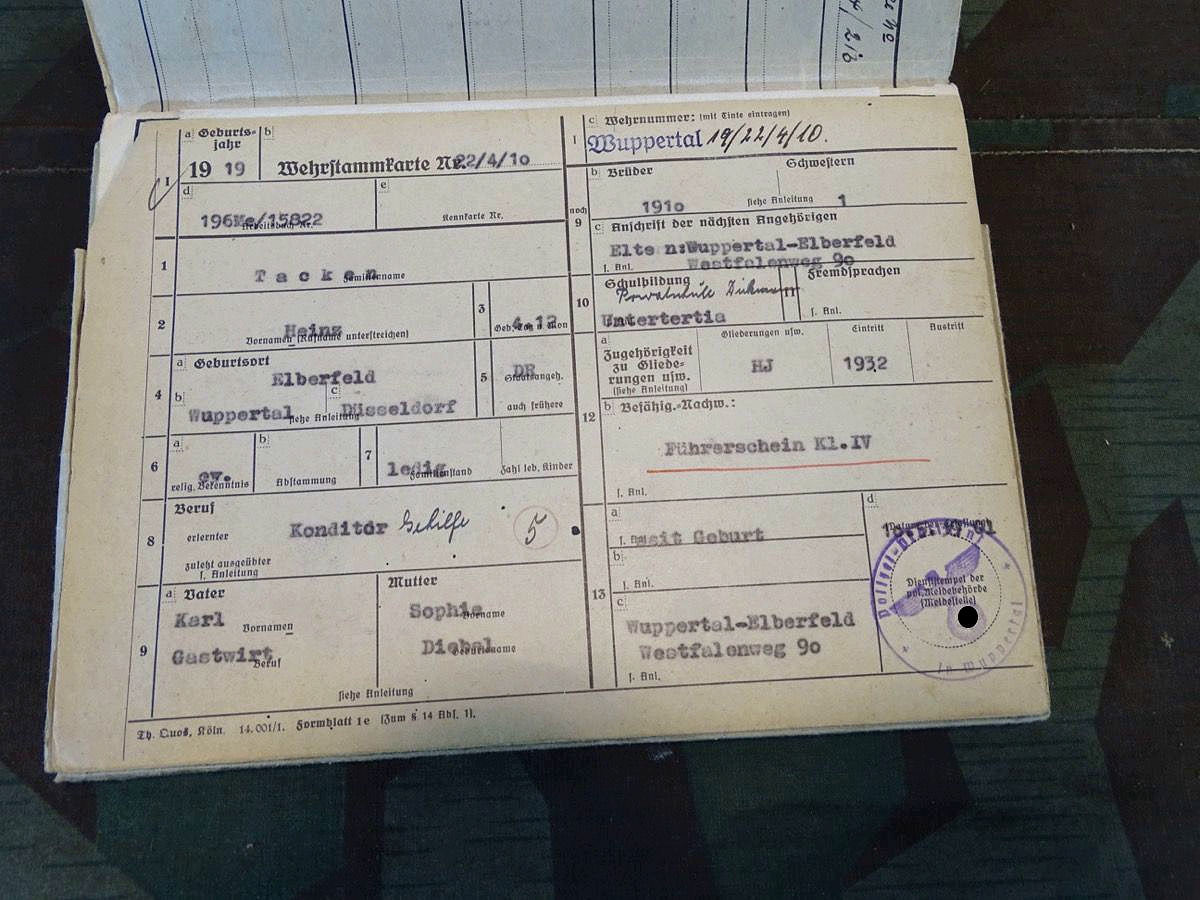 a Geburts- b
jahr
I 19 19 Wehrstammkarte Nr. 22/4/1o
d e
196We/15822
Arbeitsbuch Nr. Kennkarte Nr.
1 Tacken
Familienname
2 Heinz 3 4.12
Vornamen (Rufname unterstreichen) Geb. Tag u. Mon
4 a Geburtsort 5 DR
Elberfeld Staatsangeh.
b Wuppertal c Düsseldorf auch frühere
siehe Anleitung
6 a ev. b 7 ledig
relig. Bekenntnis Abstammung Familienstand Zahl leb. Kinder
8 Beruf
erlernter Konditor Gehilfe 5
zuletzt ausgeübter
s. Anleitung
9 a Vater Mutter
Karl Vornamen Sophie Vorname
Gastwirt Beruf Diehel Geburtsname
siehe Anleitung
Th. Quos, Köln. 14.001/1. Formblatt 1e (Zum § 14 Abs. 1).
I c Wehrnummer: (mit Tinte eintragen)
Wuppertal 19/22/4/10.
noch 9 b Brüder Schwestern
191o siehe Anleitung 1
c Anschrift der nächsten Angehörigen
Eltern:Wuppertal-Elberfeld
s. Anl. Westfalenweg 9o
10 Schulbildung 11 Fremdsprachen
Privatschule
Untertertia s. Anl.
12 a Zugehörigkeit zu Gliede-rungen usw. (siehe Anleitung) Gliederungen usw. Eintritt Austritt
HJ 1932
b Befähig.-Nachw.:
Führerschein Kl.IV
s. Anl.
13 a seit Geburt d
s. Anl.
b
s. Anl.
c Wuppertal-Elberfeld
Westfalenweg 9o
s. Anl.
Dienststempel der
pol. Meldebehörde
(Meldestelle)
in Wuppertal